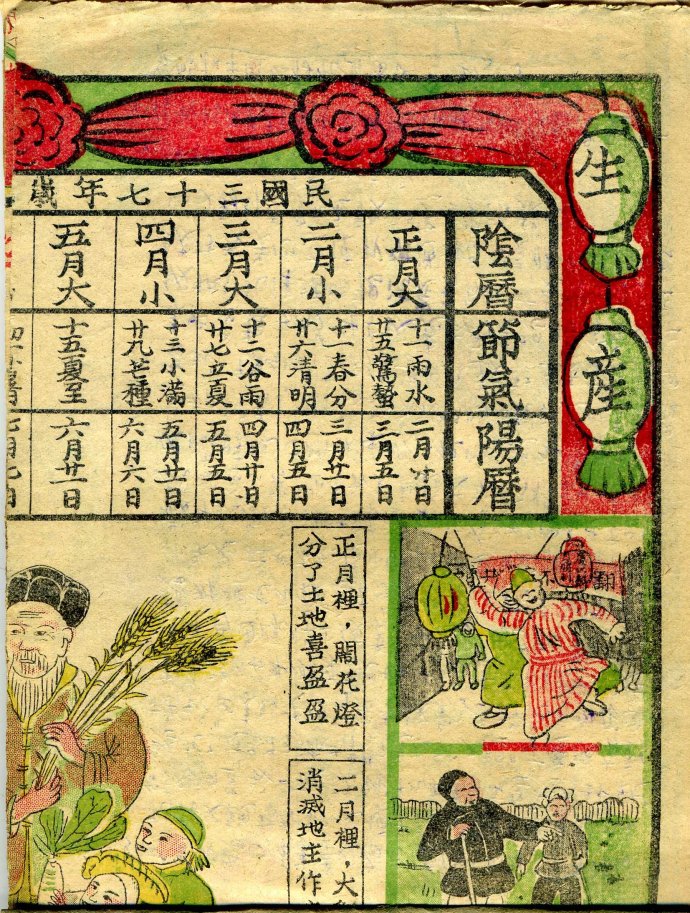 生產
民國三十七年歲
陰曆
節氣
陽曆
正月大
十一雨水
廿五驚蟄
二月廿日
三月五日
二月小
十一春分
廿六清明
三月廿一日
四月五日
三月大
十二谷雨
廿七立夏
四月廿日
五月五日
四月小
十三小滿
廿九芒種
五月廿一日
六月六日
五月大
十五夏至
六月廿一日
正月裡，開花燈
分了土地喜盈盈
二月裡，大
消滅地主作